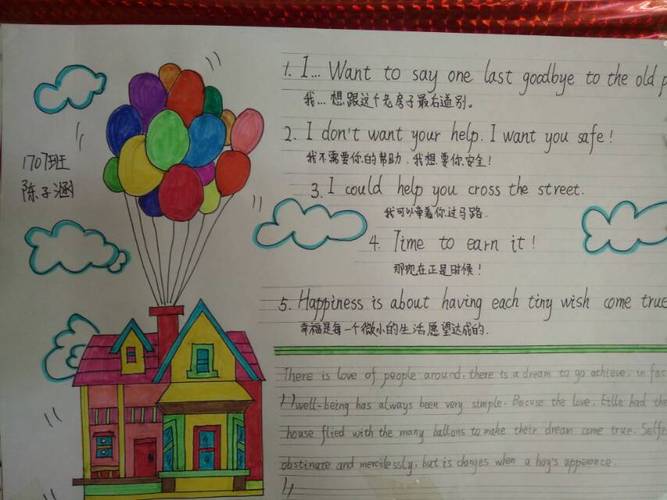 1707班
陈子涵
1. I... Want to say one last goodbye to the old p
我...想跟这个老房子最后道别。
2. I don't want your help. I want you safe!
我不需要你的帮助,我想要你安全!
3. I could help you cross the street.
我可以带着你过马路.
4. Time to earn it!
那现在正是时候!
5. Happiness is about having each tiny wish come true
幸福是每一个微小的生活愿望达成的.
There is love of people around. there is a dream to go achieve. in fac
well-being has always been very simple. Becuse the love. Ella had
house flied with the many ballons to make their dream come true. Selfe
obstinate and mercilessly, but is danjes when a bay's appearance.